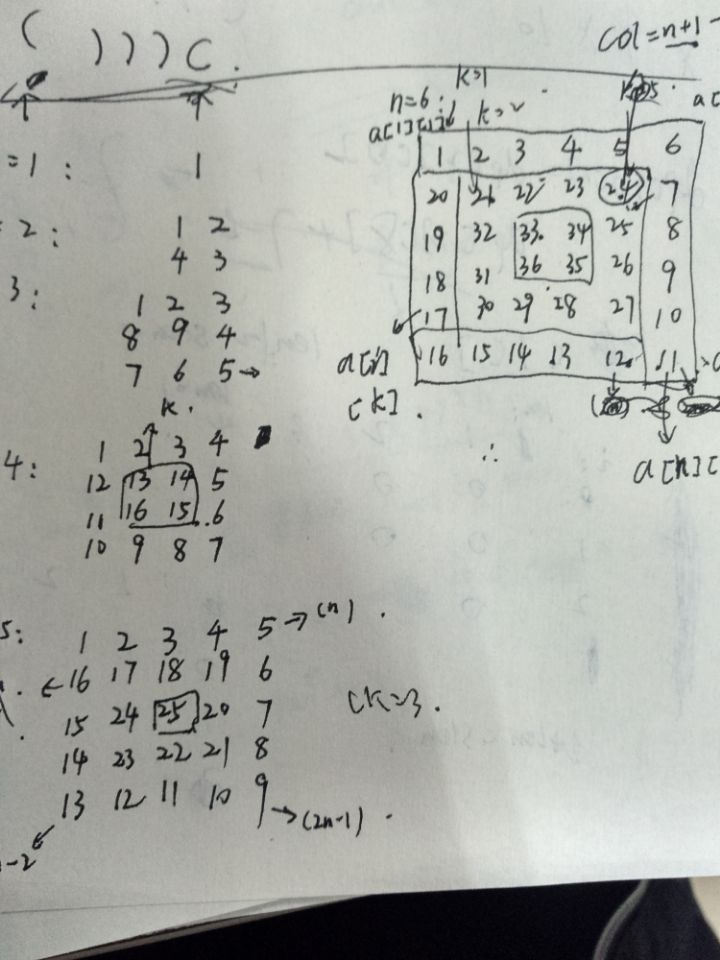 ( ) ) ) C .
col = n+1 -
= 1 : 1
2 : 1 2
4 3
3 : 1 2 3
8 9 4
7 6 5 →
k .
4 : 1 2 3 4
12 13 14 5
11 16 15 6
10 9 8 7
5 : 1 2 3 4 5 → (n) .
← 16 17 18 19 6
15 24 25 20 7
14 23 22 21 8
13 12 11 10 9
→ (2n-1) .
-2
k=3 .
k=1
n=6 :
a[1][1]
1 2 3 4 5 6
20 21 22 23 24 7
19 32 33 34 25 8
18 31 36 35 26 9
17 30 29 28 27 10
16 15 14 13 12 11
a[i]
[k] .
∴
a[n][